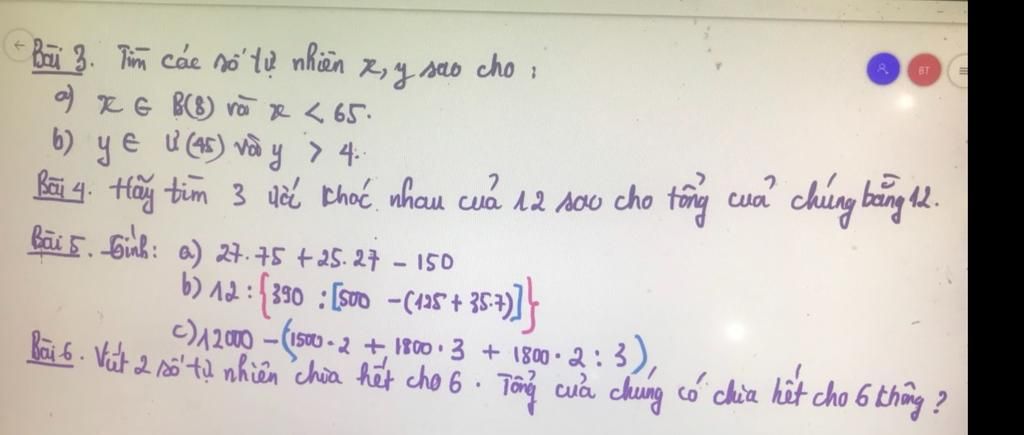 Bài 3. Tìm các số tự nhiên x, y sao cho:
a) x ∈ B(8) và x < 65.
b) y ∈ Ư(45) và y > 4.
Bài 4. Hãy tìm 3 ước khác nhau của 12 sao cho tổng của chúng bằng 12.
Bài 5. Tính: a) 27.75 + 25.27 - 150
b) 12 : {390 : [500 - (125 + 35.7)]}
c) 12000 - (1500.2 + 1800.3 + 1800.2 : 3)
Bài 6. Viết 2 số tự nhiên chia hết cho 6. Tổng của chúng có chia hết cho 6 không?
BT